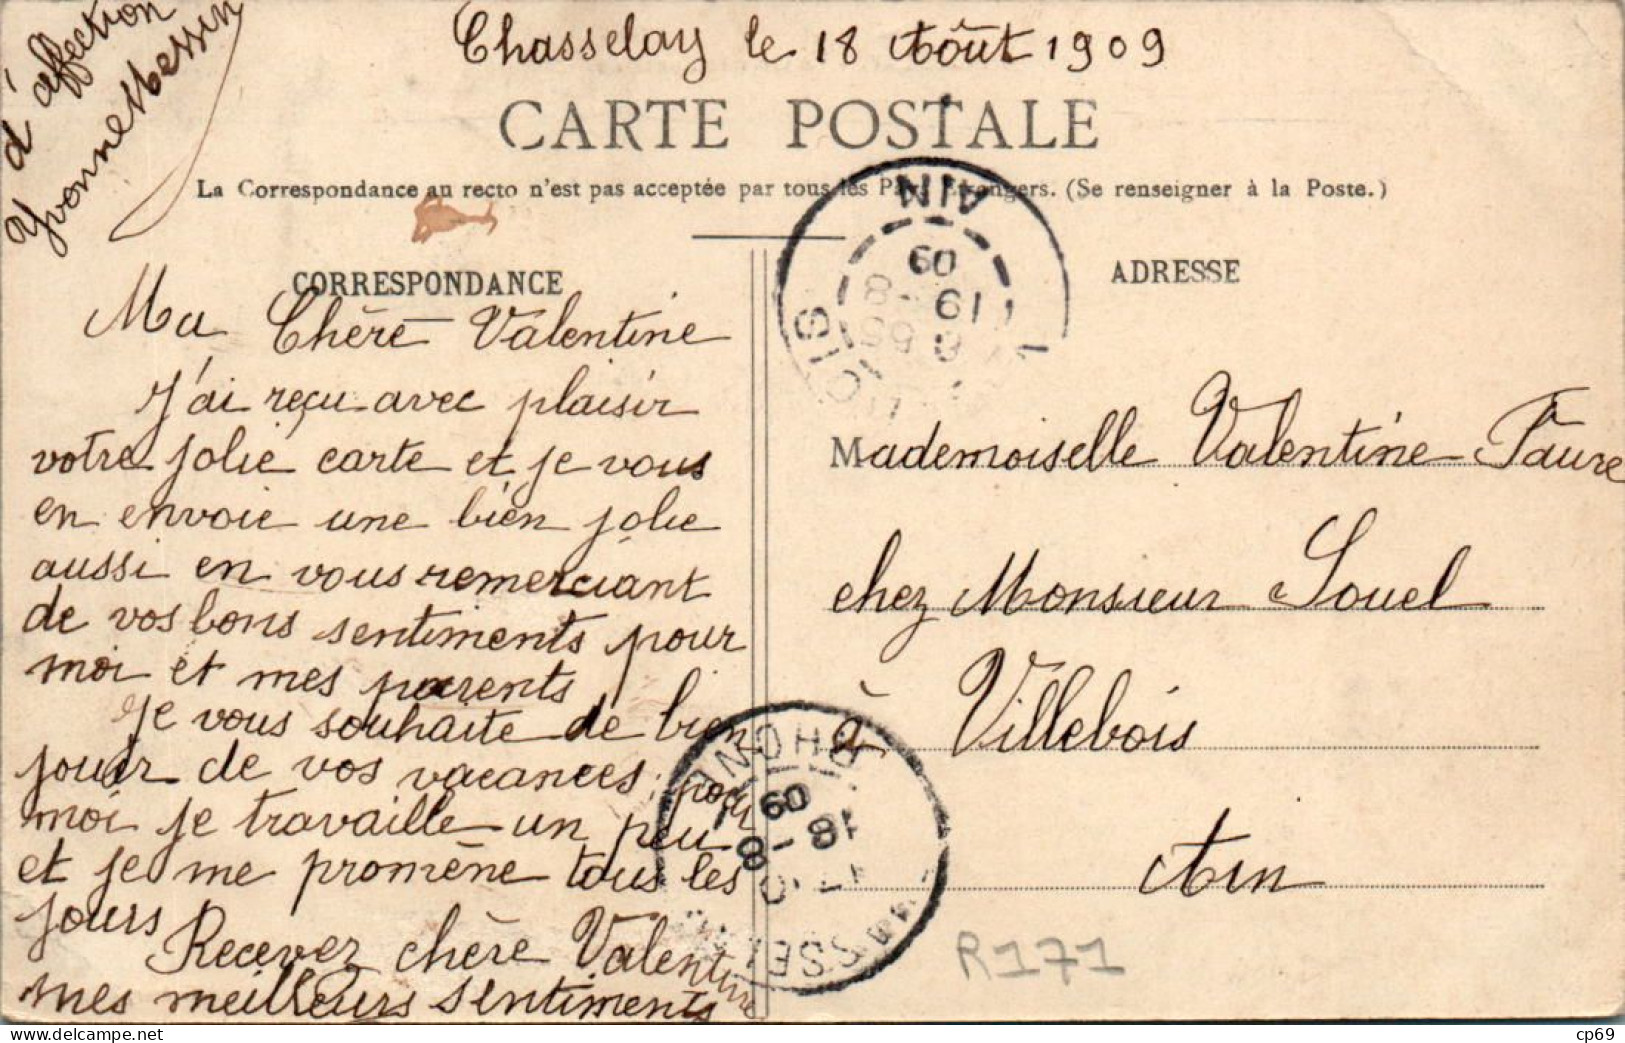 Chasselay le 18 Août 1909
CARTE POSTALE
La Correspondance au recto n'est pas acceptée par tous les Pays Etrangers. (Se renseigner à la Poste.)
CORRESPONDANCE
Ma Chère Valentine
J'ai reçu avec plaisir
votre jolie carte et je vous
en envoie une bien jolie
aussi en vous remerciant
de vos bons sentiments pour
moi et mes parents
Je vous souhaite de bien
jouir de vos vacances, pour
moi je travaille un peu
et je me promène tous les
jours
Recevez chère Valentine
mes meilleurs sentiments
d'affection
Yvonne Messin
ADRESSE
Mademoiselle Valentine Faure
chez Monsieur Souel
à Villebois
Ain
AIN
09
19 -8
OIS
RHONE
09
18 -8
SSEL
R171
cp69